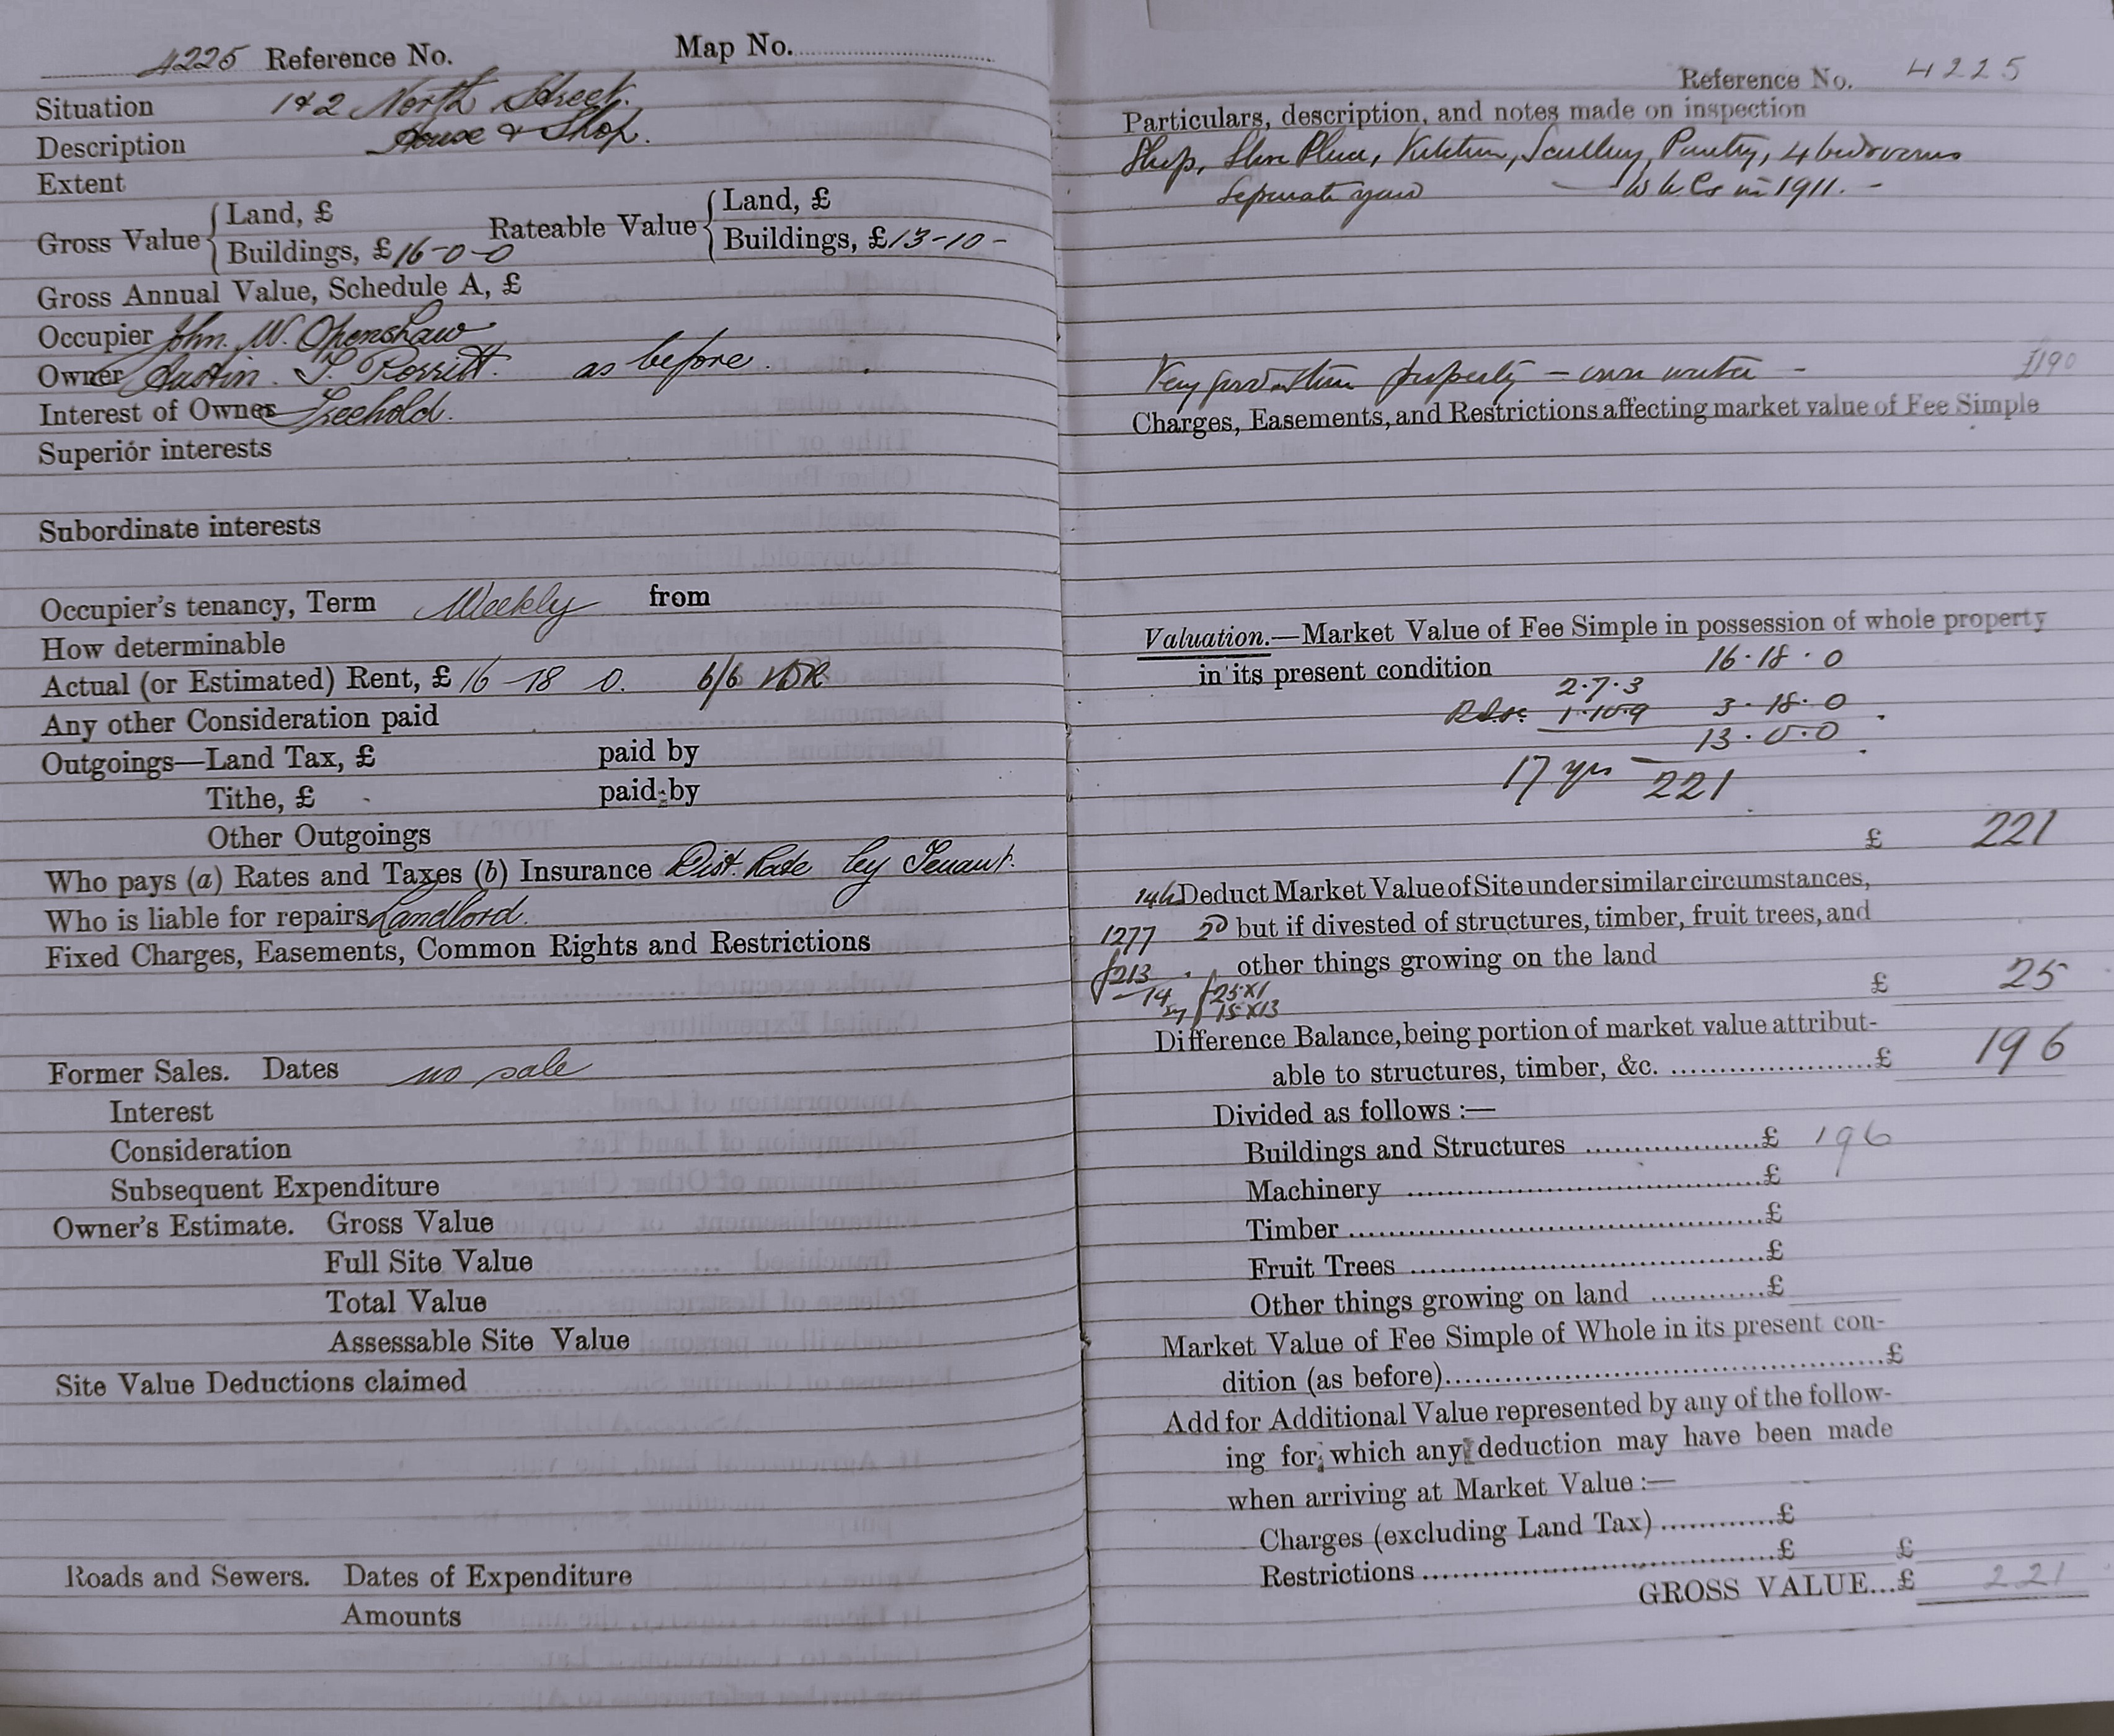 4225 Reference No. Map No.
Situation 1 & 2 North Street.
Description House & Shop.
Extent
Gross Value { Land, £ Rateable Value { Land, £
Buildings, £ 16-0-0 Buildings, £ 13-10-
Gross Annual Value, Schedule A, £
Occupier John. W. Openshaw
Owner Austin. T. Porritt. as before.
Interest of Owner Freehold.
Superior interests
Subordinate interests
Occupier's tenancy, Term Weekly from
How determinable
Actual (or Estimated) Rent, £ 16 18 0. 6/6
Any other Consideration paid
Outgoings—Land Tax, £ paid by
Tithe, £ paid by
Other Outgoings
Who pays (a) Rates and Taxes (b) Insurance Dist. Rate by Tenant.
Who is liable for repairs Landlord.
Fixed Charges, Easements, Common Rights and Restrictions
Former Sales. Dates no sale
Interest
Consideration
Subsequent Expenditure
Owner's Estimate. Gross Value
Full Site Value
Total Value
Assessable Site Value
Site Value Deductions claimed
Roads and Sewers. Dates of Expenditure
Amounts
Reference No. 4225
Particulars, description, and notes made on inspection
Shop, Kitchen, Scullery, Pantry, 4 bedrooms
Separate yard — in 1911. -
Very good property — own water - £190
Charges, Easements, and Restrictions affecting market value of Fee Simple
Valuation.—Market Value of Fee Simple in possession of whole property
in its present condition 16.18.0
2.7.3
1.10.9 3.18.0
13.0.0
17 yrs 221
£ 221
Deduct Market Value of Site under similar circumstances,
1277 but if divested of structures, timber, fruit trees, and
£213 other things growing on the land
14 25x1 £ 25
15x13
Difference Balance, being portion of market value attribut-
able to structures, timber, &c. ....................£ 196
Divided as follows :—
Buildings and Structures .................£ 196
Machinery .................£
Timber .................£
Fruit Trees .................£
Other things growing on land ............£
Market Value of Fee Simple of Whole in its present con-
dition (as before).................£
Add for Additional Value represented by any of the follow-
ing for which any deduction may have been made
when arriving at Market Value :—
Charges (excluding Land Tax) ............£
Restrictions .................£ £
GROSS VALUE...£ 221